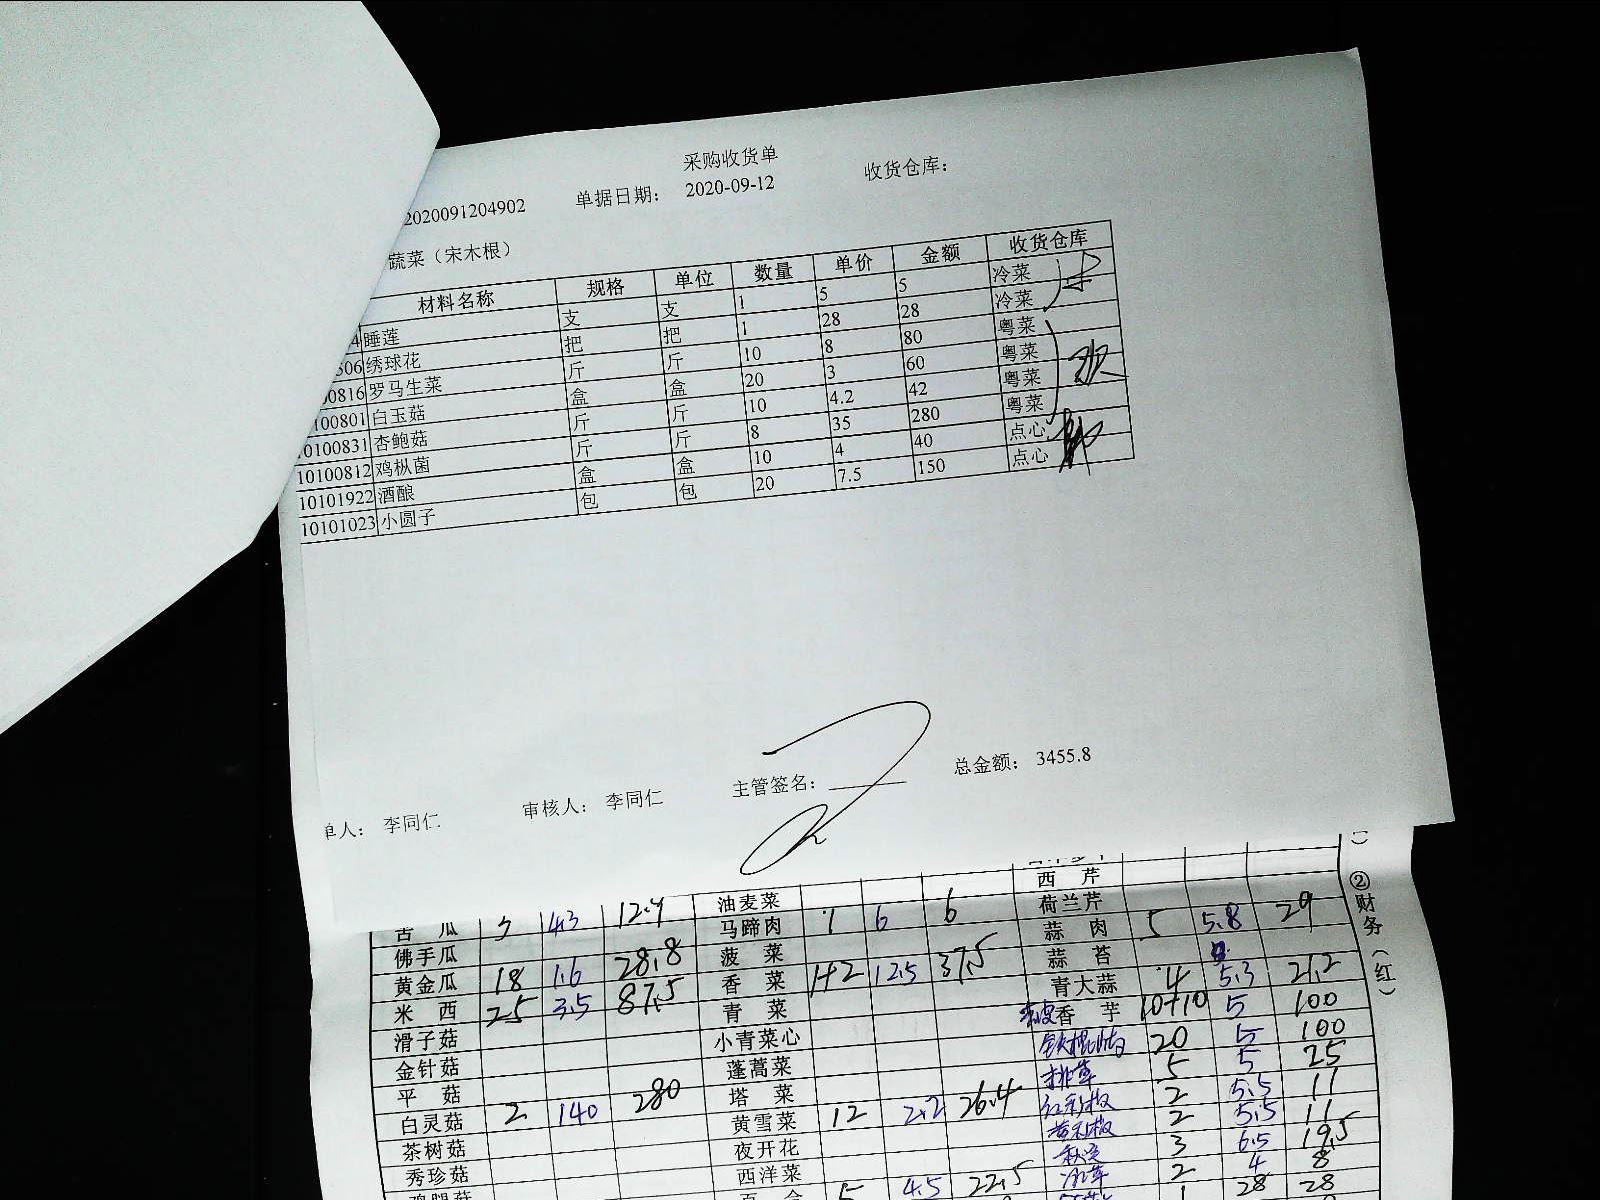 采购收货单
2020091204902 单据日期： 2020-09-12 收货仓库：
蔬菜（宋木根）
材料名称 规格 单位 数量 单价 金额 收货仓库
4 睡莲 支 支 1 5 5 冷菜
506 绣球花 把 把 1 28 28 冷菜
00816 罗马生菜 斤 斤 10 8 80 粤菜
100801 白玉菇 盒 盒 20 3 60 粤菜
0100831 杏鲍菇 斤 斤 10 4.2 42 粤菜
10100812 鸡枞菌 斤 斤 8 35 280 粤菜
10101922 酒酿 盒 盒 10 4 40 点心
10101023 小圆子 包 包 20 7.5 150 点心
单人： 李同仁 审核人： 李同仁 主管签名： 总金额： 3455.8
油麦菜 西 芹
苦 瓜 3 4.3 12.9 马蹄肉 1 6 6 荷兰芹
佛手瓜 菠 菜 蒜 肉 5 5.8 29
黄金瓜 18 1.6 28.8 香 菜 1+2 12.5 37.5 蒜 苔
米 西 25 3.5 87.5 青 菜 青大蒜 4 5.3 21.2
滑子菇 小青菜心 香 芋 10+10 5 100
金针菇 蓬蒿菜 20 5 100
平 菇 塔 菜 5 5 25
白灵菇 2 140 280 黄雪菜 12 2.2 26.4 红利椒 2 5.5 11
茶树菇 夜开花 黄利椒 2 5.5 11
秀珍菇 西洋菜 3 6.5 19.5
5 4.5 22.5 2 4 8
1 28 28
②财务（红）